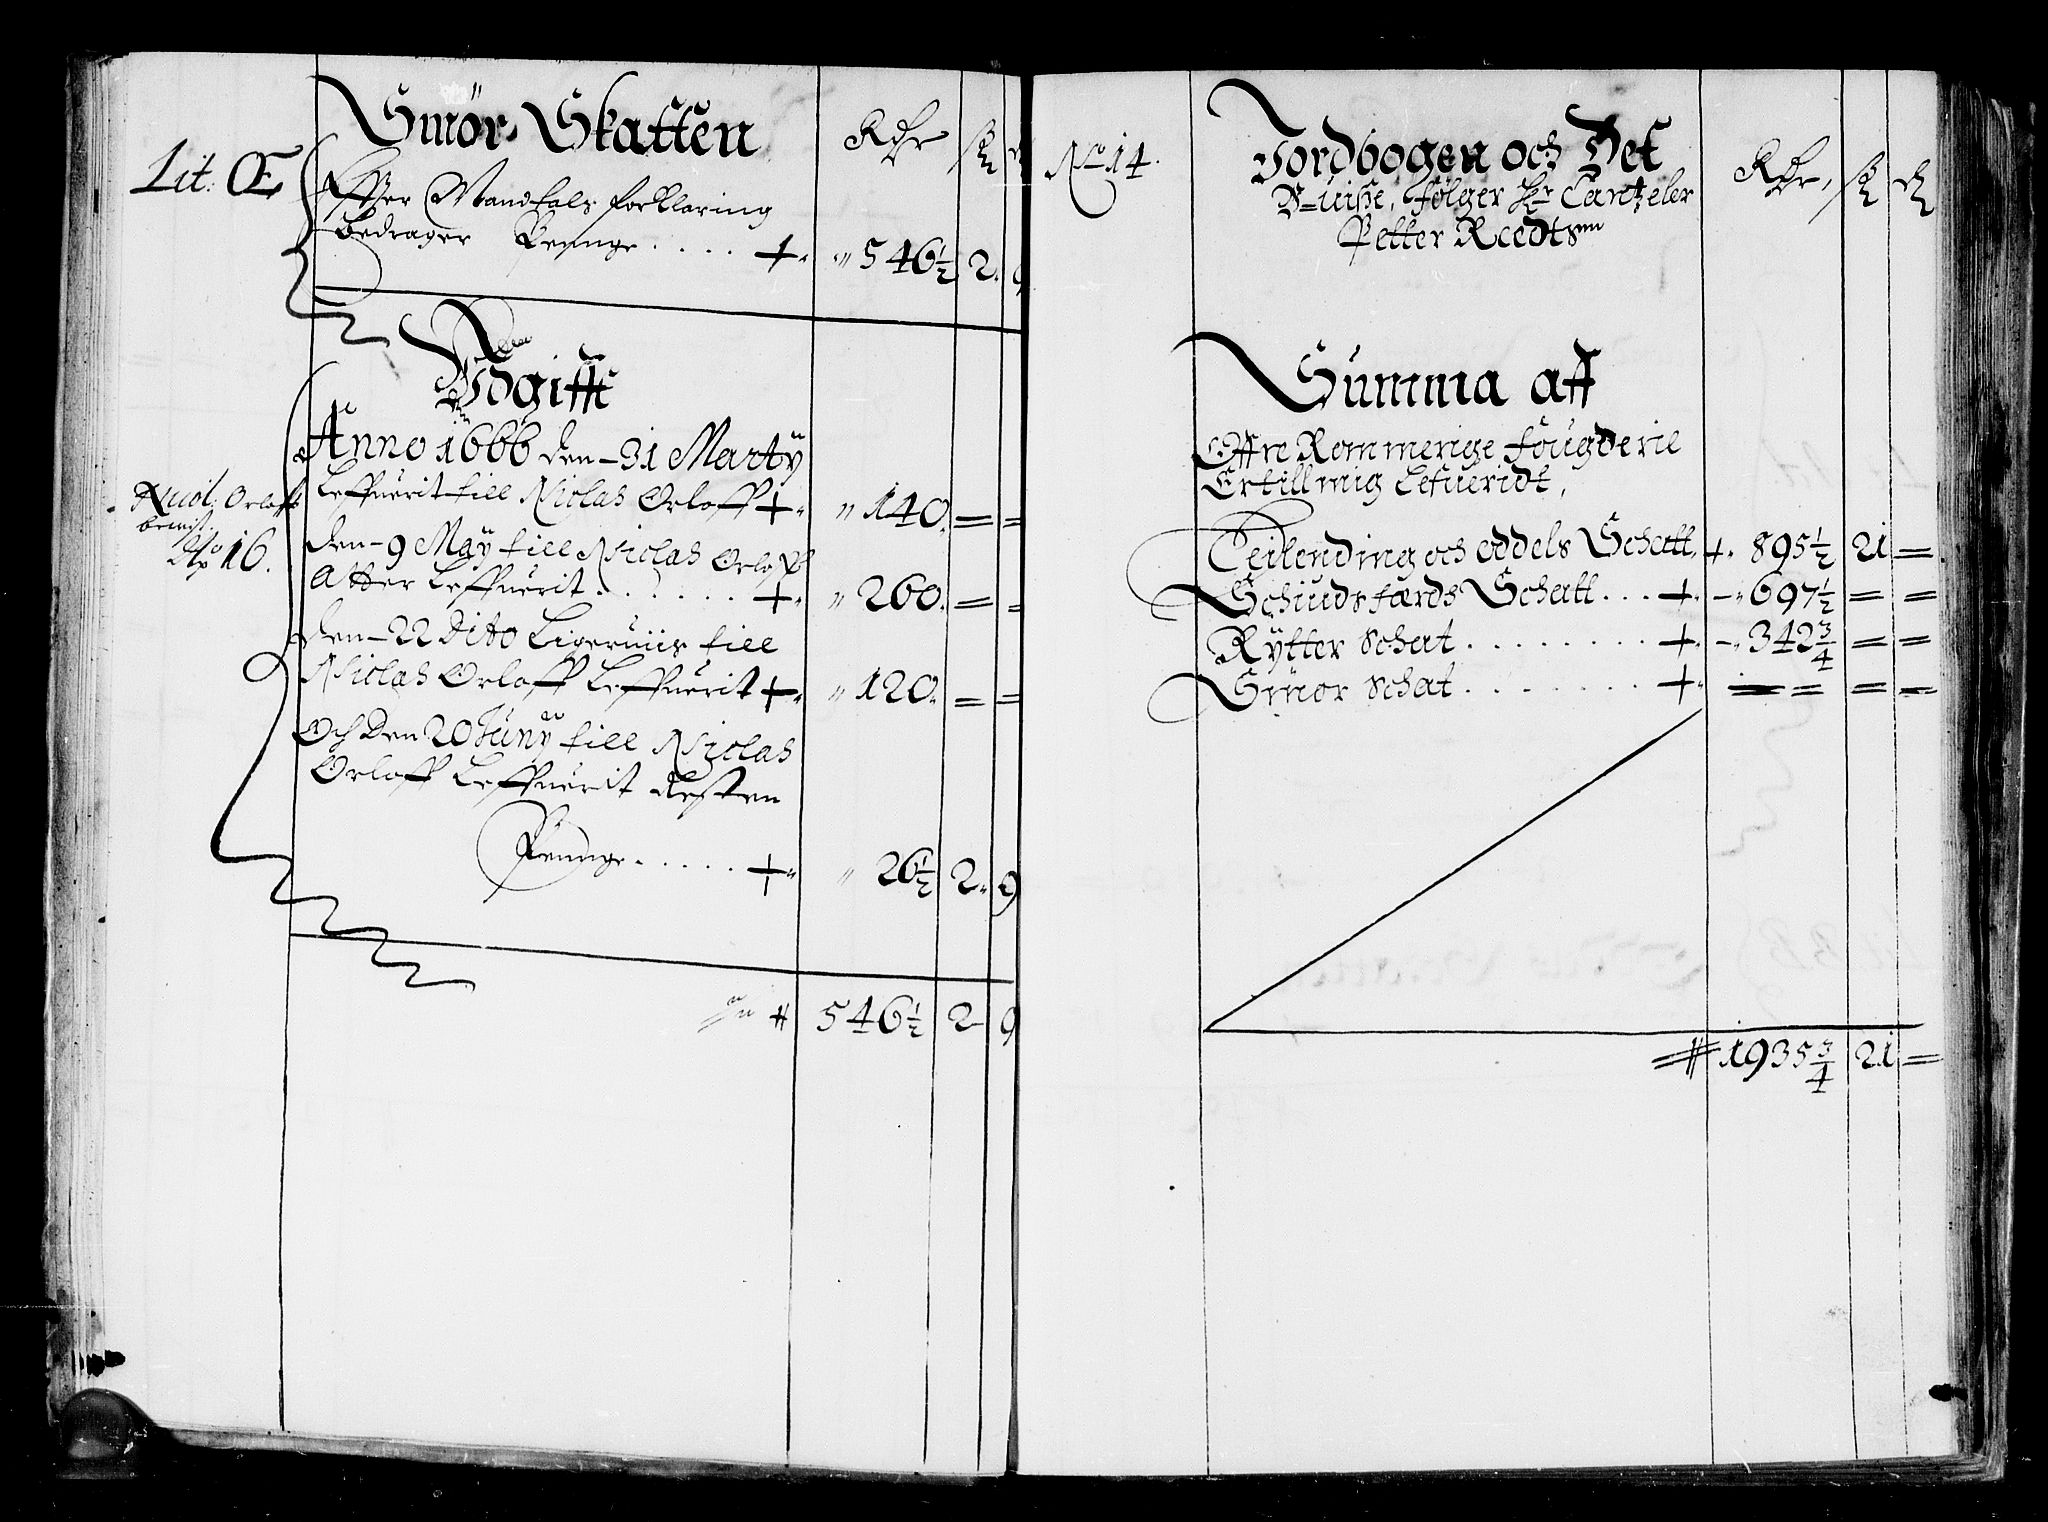 Smör Skatten Rdr ß
Lit: Œ
Effter Mandtals forklaring
bedrager Pennge . . . . + 546½ 2 9
Udgifft
Anno 1666 den 31 Marty
Leffuerit till Niclas Orloff + 140 = =
Quit: Orloffs
beuist
No 16.
Den 9 May till Niclas Orloff
Atter Leffuerit . . . . . . + 260 = =
Den 22 Dito Ligeruiis till
Niclas Orloff Leffuerit + 120 = =
Och Den 20 Juny till Niclas
Orloff Leffuerit Resten
Pennge . . . . . + 26½ 2 9
# 546½ 2 9
No 14.
Jordbogen och Det Rdr, ß
Beuiße, følger Hr Cantzeler
Petter Reedtsm
Summa aff
Offre Rommerige fougderie
Er till mig Lefueridt,
Leilending och oddels Schatt, + 895½ 21 =
Schiudsfærds Schatt . . . + 697½ = =
Rytter Schat . . . . . . . . + 342¾ = =
Smör Schat . . . . . . . + = = = =
# 1935¾ 21 =